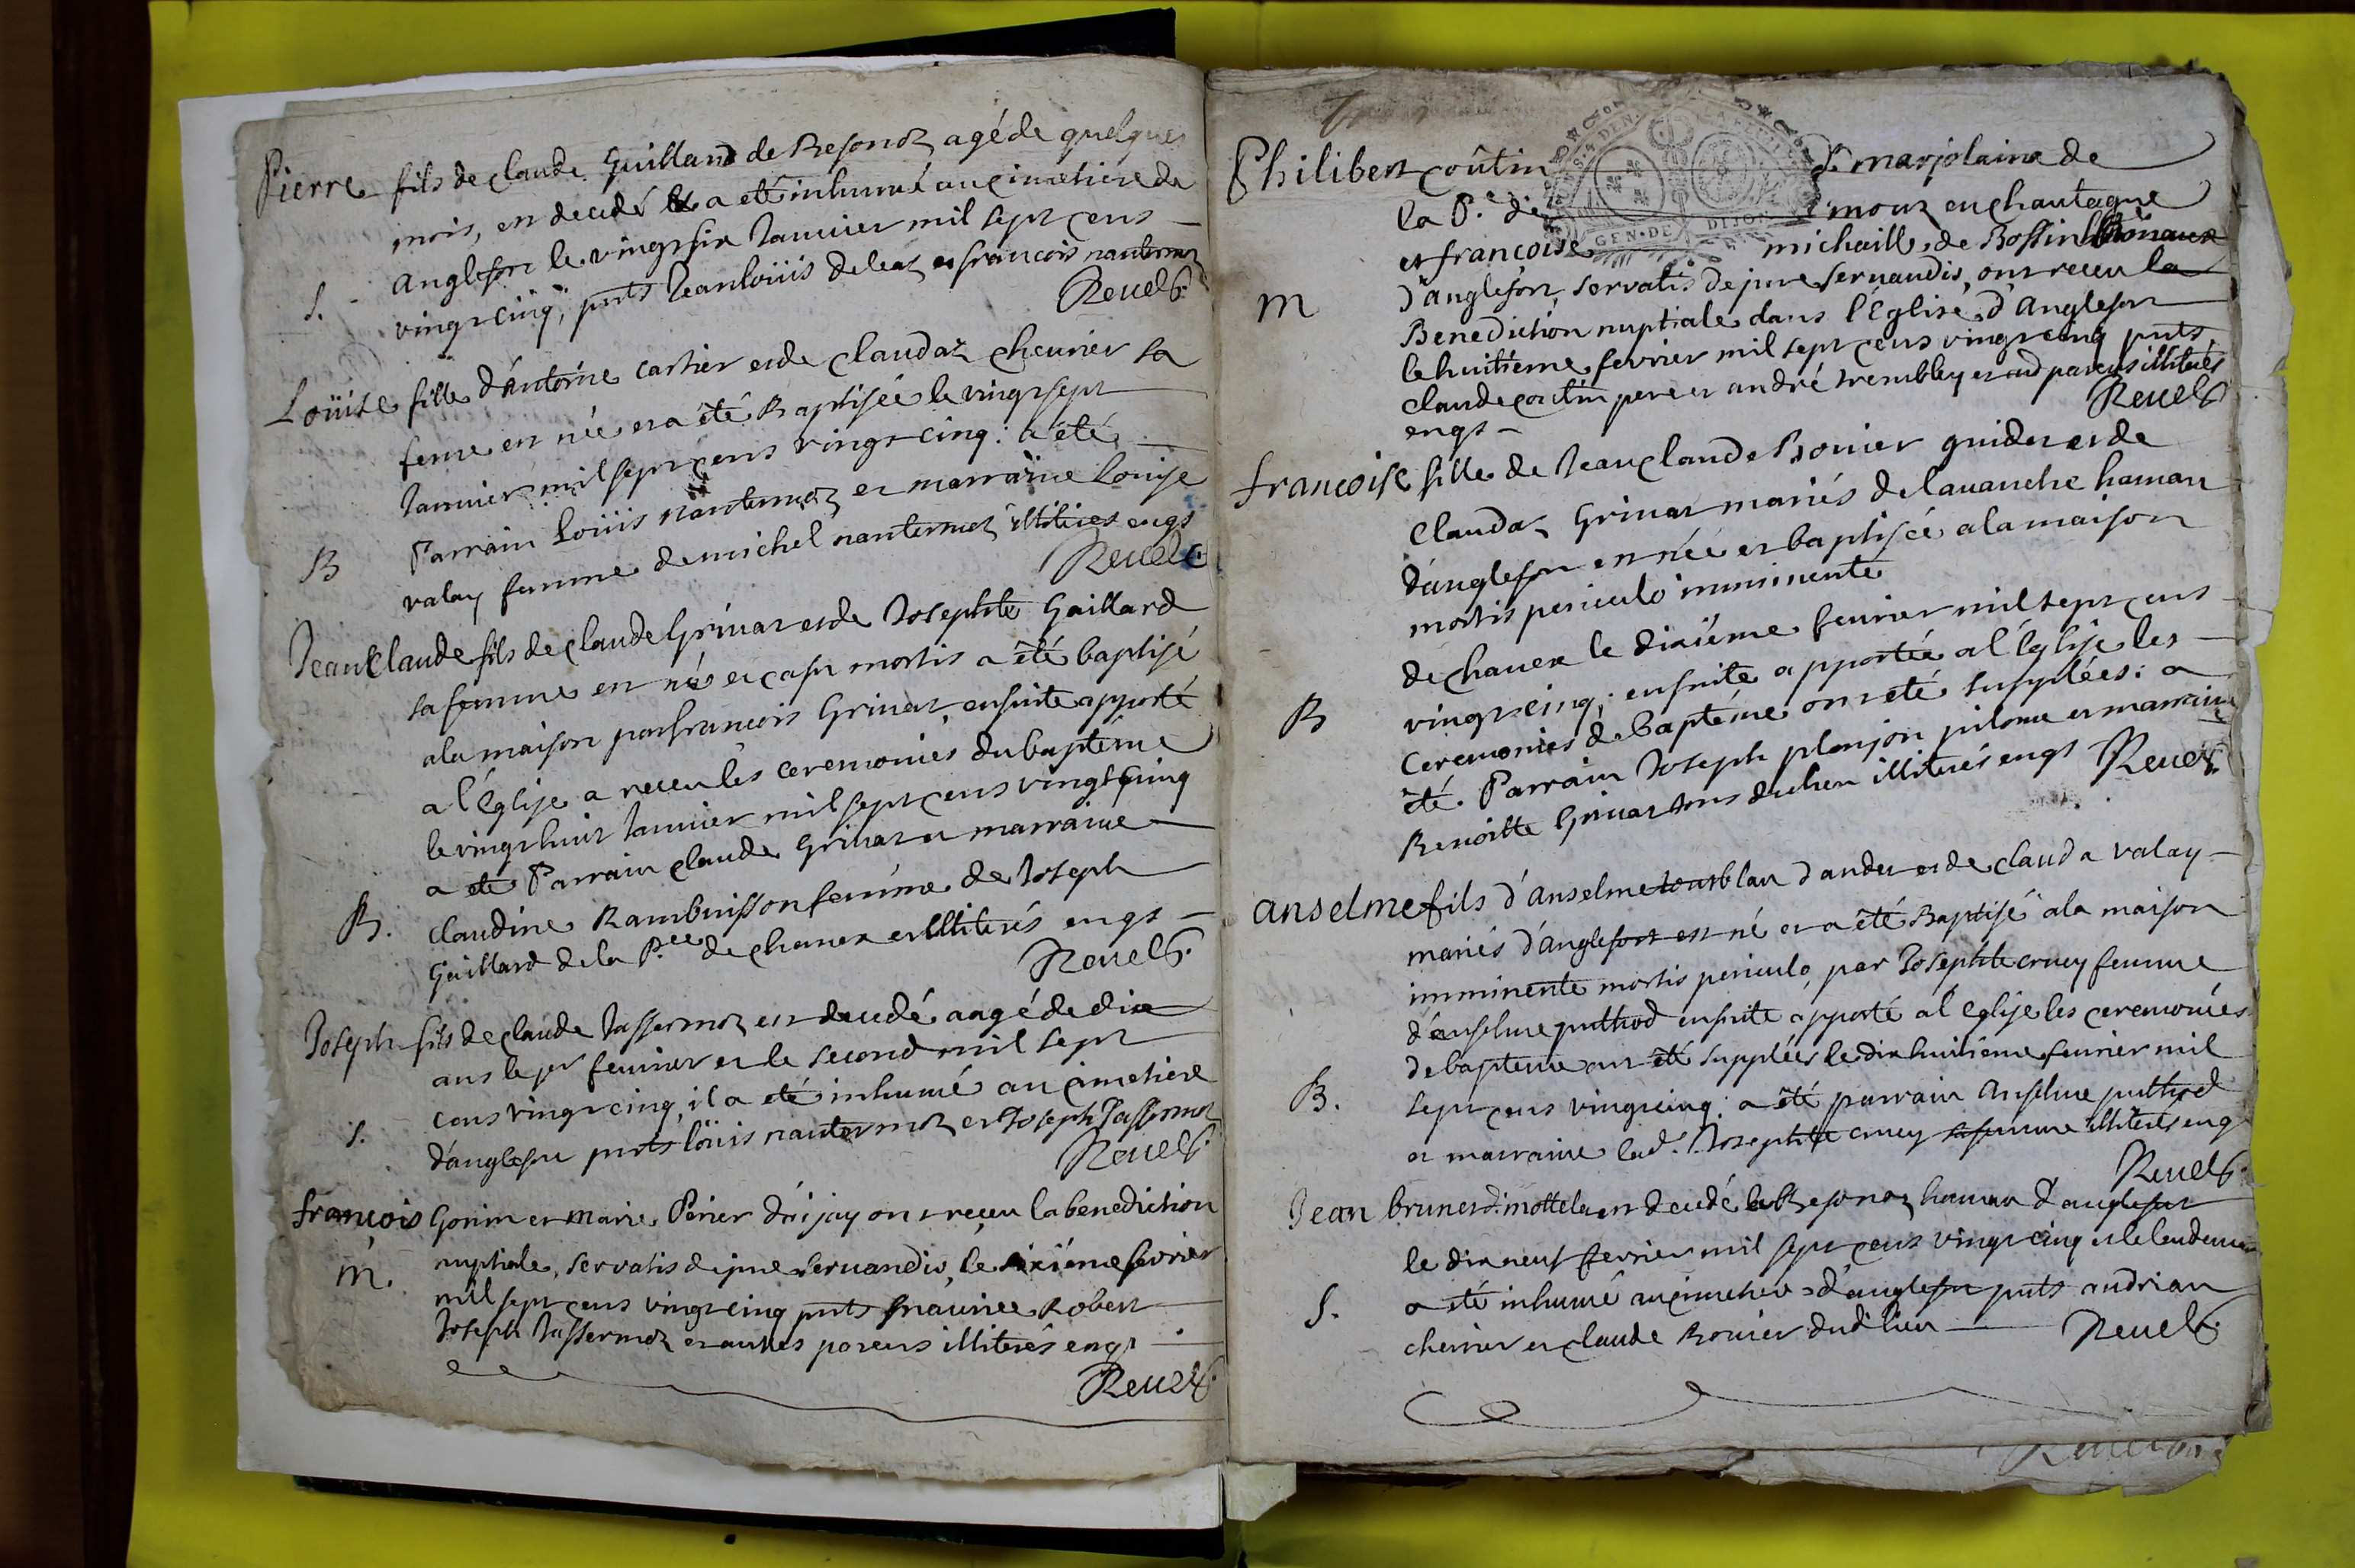 Pierre fils de claude Guilland de Resonoz agé de quelques
mois, est decedé et a eté inhumé au cimetiere de
anglefort le vingt six Januier mil sept cens
S. vingt cinq, pnts Jean loüis deleaz et francois nantermoz
Reuel C.
Loüise fille d'antoine cartier et de claudaz cheurier sa
feme est née et a été Baptisée le vingt sept
Januier mil sept cens vingt cinq: a été
B Parrain Loüis nantermoz et marraine Louise
valay femme de michel nantermoz illiterés enqs
Reuel C.
Jean Claude fils de claude Grinat et de Josephte Gaillard
sa femme est né et casu mortis a été baptisé
a la maison par francois Grinat ensuite apporté
a l'Eglise a receu les ceremonies du baptême
le vingt huit Januier mil sept cens vingt cinq
a eté Parrain claude Grinat et marraine
B. claudine Rambuisson femme de Joseph
Gaillard de la P.ce de chanex illiterés enqs
Reuel C.
Joseph fils de claude Jassermoz est decedé aagé de dix
ans le per feurier et le second mil sept
cens vingt cinq, il a eté inhumé au cimetiere
S. d'anglefort pnts loüis nantermoz et Joseph Jassermoz
Reuel C.
françois Gonin et Marie Perier d'ijay ont reçeu la benediction
m. nuptiale, servatis de jure seruandis, le sixiéme fevrier
mil sept cens vingt cinq pnts maurice Robert
Joseph Jassermoz et autres parens illiterés enqs
Reuel C.
Philibert coûtin marjolaine de
la P.e de en chautagne
et francoise michaille de Bossin
m d'anglefort, servatis de jure seruandis, ont receu la
Benediction nuptiale dans l'Église d'Anglefort
le huitiéme fevrier mil sept cens vingt cinq pnts
claude coutin pere et andré trembley et aud parens illiterés
enqs Reuel C.
francoise fille de Jean claude Bonier guidet et de
claudaz Grinat mariés de lauanche hameau
d'anglefort est née et baptisée a la maison
mortis periculo imminente
de chanex le dixiéme feurier mil sept cens
B vingt cinq; ensuite apportée al'Eglise les
ceremonies de baptême ont eté supplées: a
été Parrain Joseph plonjon et marraine
Benoitte Grinat tous dudit lieu illiterés enqs Reuel C.
anselme fils d'anselme d'andert et de clauda valay
mariés d'anglefort est né et a été Baptisé a la maison
imminente mortis periculo, par Josephte crucy femme
d'anselme puthod ensuite apporté al'eglise les ceremonies
de bapteme ont eté supplées le dix huitieme feurier mil
B. sept cens vingt cinq: a été parrain Anselme puthod
et marraine lad.e Josephte crucy sa femme illiterés enqs
Reuel C.
Jean brunet d. mottelet est decedé a Resonoz hameau d'anglefort
le dix neuf feurier mil sept cens vingt cinq et le lendemain
S. a eté inhumé au cimetiere d'anglefort pnts andrian
cherrier et claude Bonier dud. lieu Reuel C.
GEN·DE DIJON